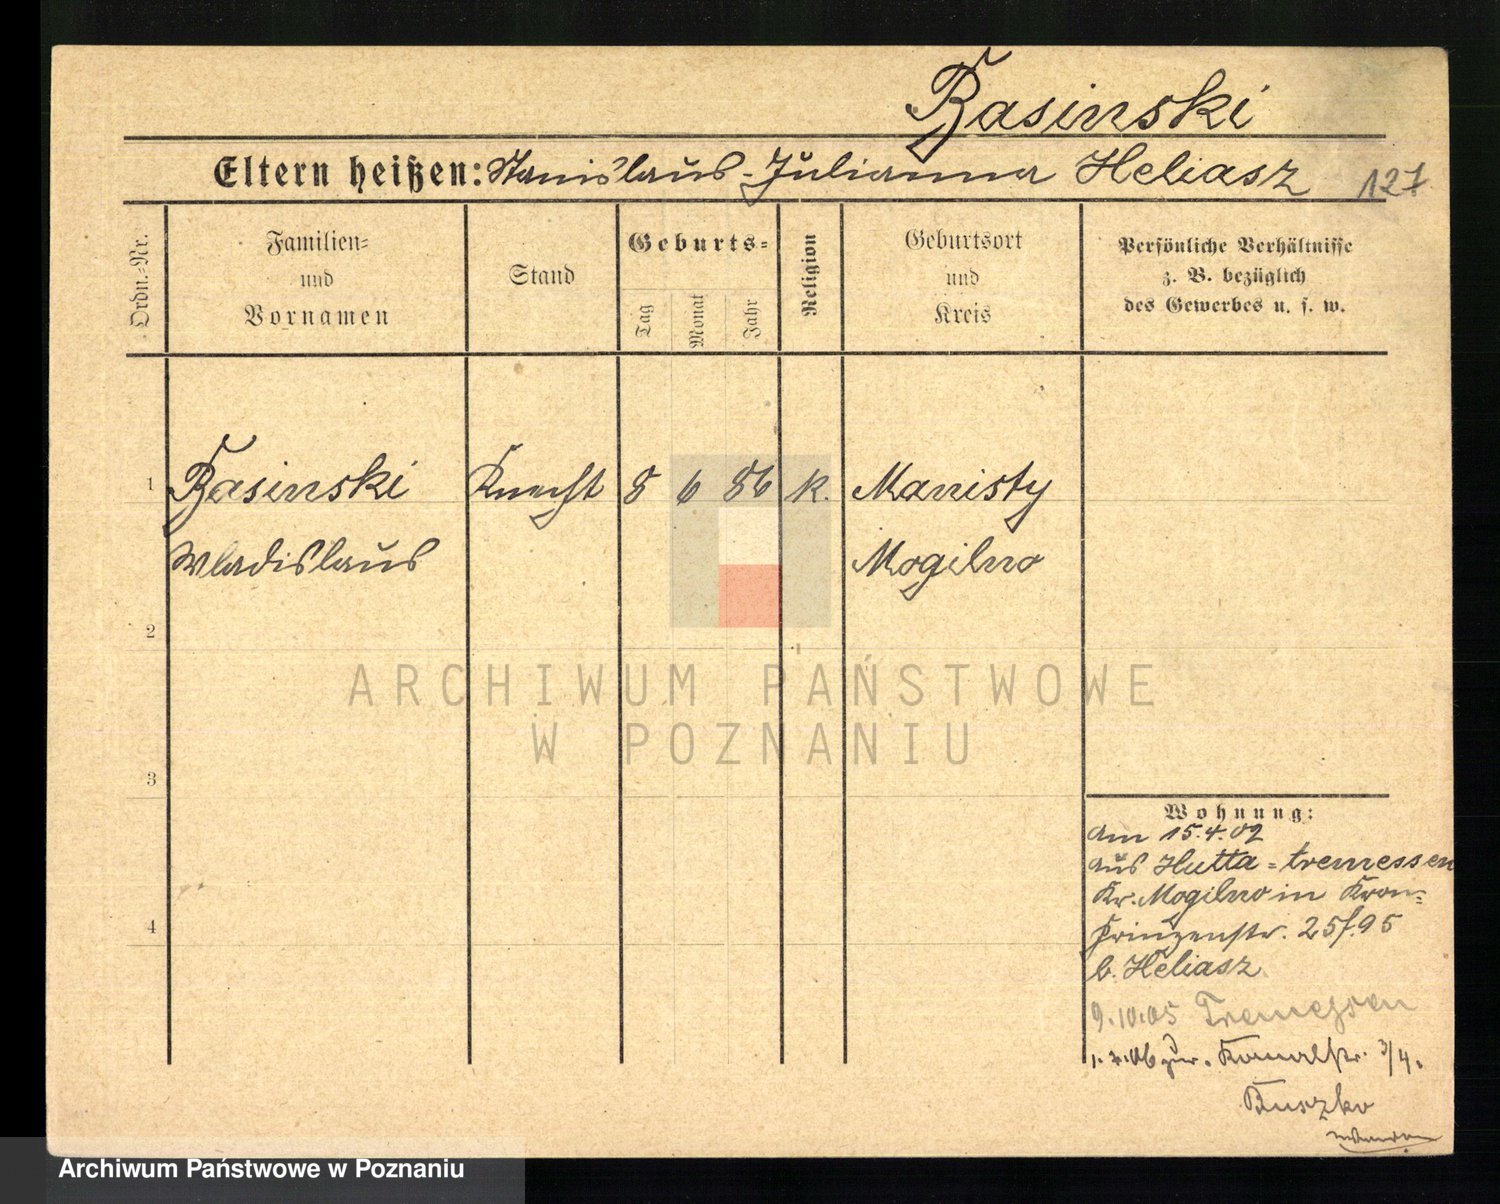 Basinski
Eltern heißen: Stanislaus - Julianna Heliasz 127
Ordn.-Nr.
Familien-
und
Vornamen
Stand
Geburts-
Tag
Monat
Jahr
Religion
Geburtsort
und
Kreis
Persönliche Verhältnisse
z. B. bezüglich
des Gewerbes u. s. w.
1 Basinski Knecht 8 6 86 k. Manisty
Wladislaus Mogilno
2
3
4
ARCHIWUM PAŃSTWOWE
W POZNANIU
Wohnung:
Am 15.4.02
aus Hutta-tremessen
Kr. Mogilno in Kron-
prinzenstr. 25 f. 95
b. Heliasz
9.10.05 Tremessen
zur. 3/4.
Archiwum Państwowe w Poznaniu